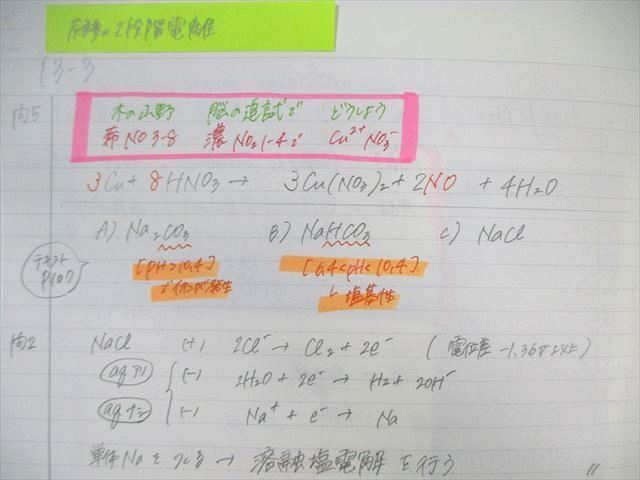 の2段階電離
13-3
問5
木の山野 脳の追試で どうしよう
希NO3-8 濃NO₂1-4で Cu²⁺NO₃⁻
3Cu + 8HNO₃ → 3Cu(NO₃)₂ + 2NO + 4H₂O
A) Na₂CO₃ B) NaHCO₃ C) NaCl
テキスト
[pH>10.4] [6.4<pH<10.4]
で 発生 塩基性
問2 NaCl (+) 2Cl⁻ → Cl₂ + 2e⁻ (電位差 -1.36V
aqアリ (-) 2H₂O + 2e⁻ → H₂ + 2OH⁻
aqナシ (-) Na⁺ + e⁻ → Na
単体Naをつくる → 溶融塩電解を行う